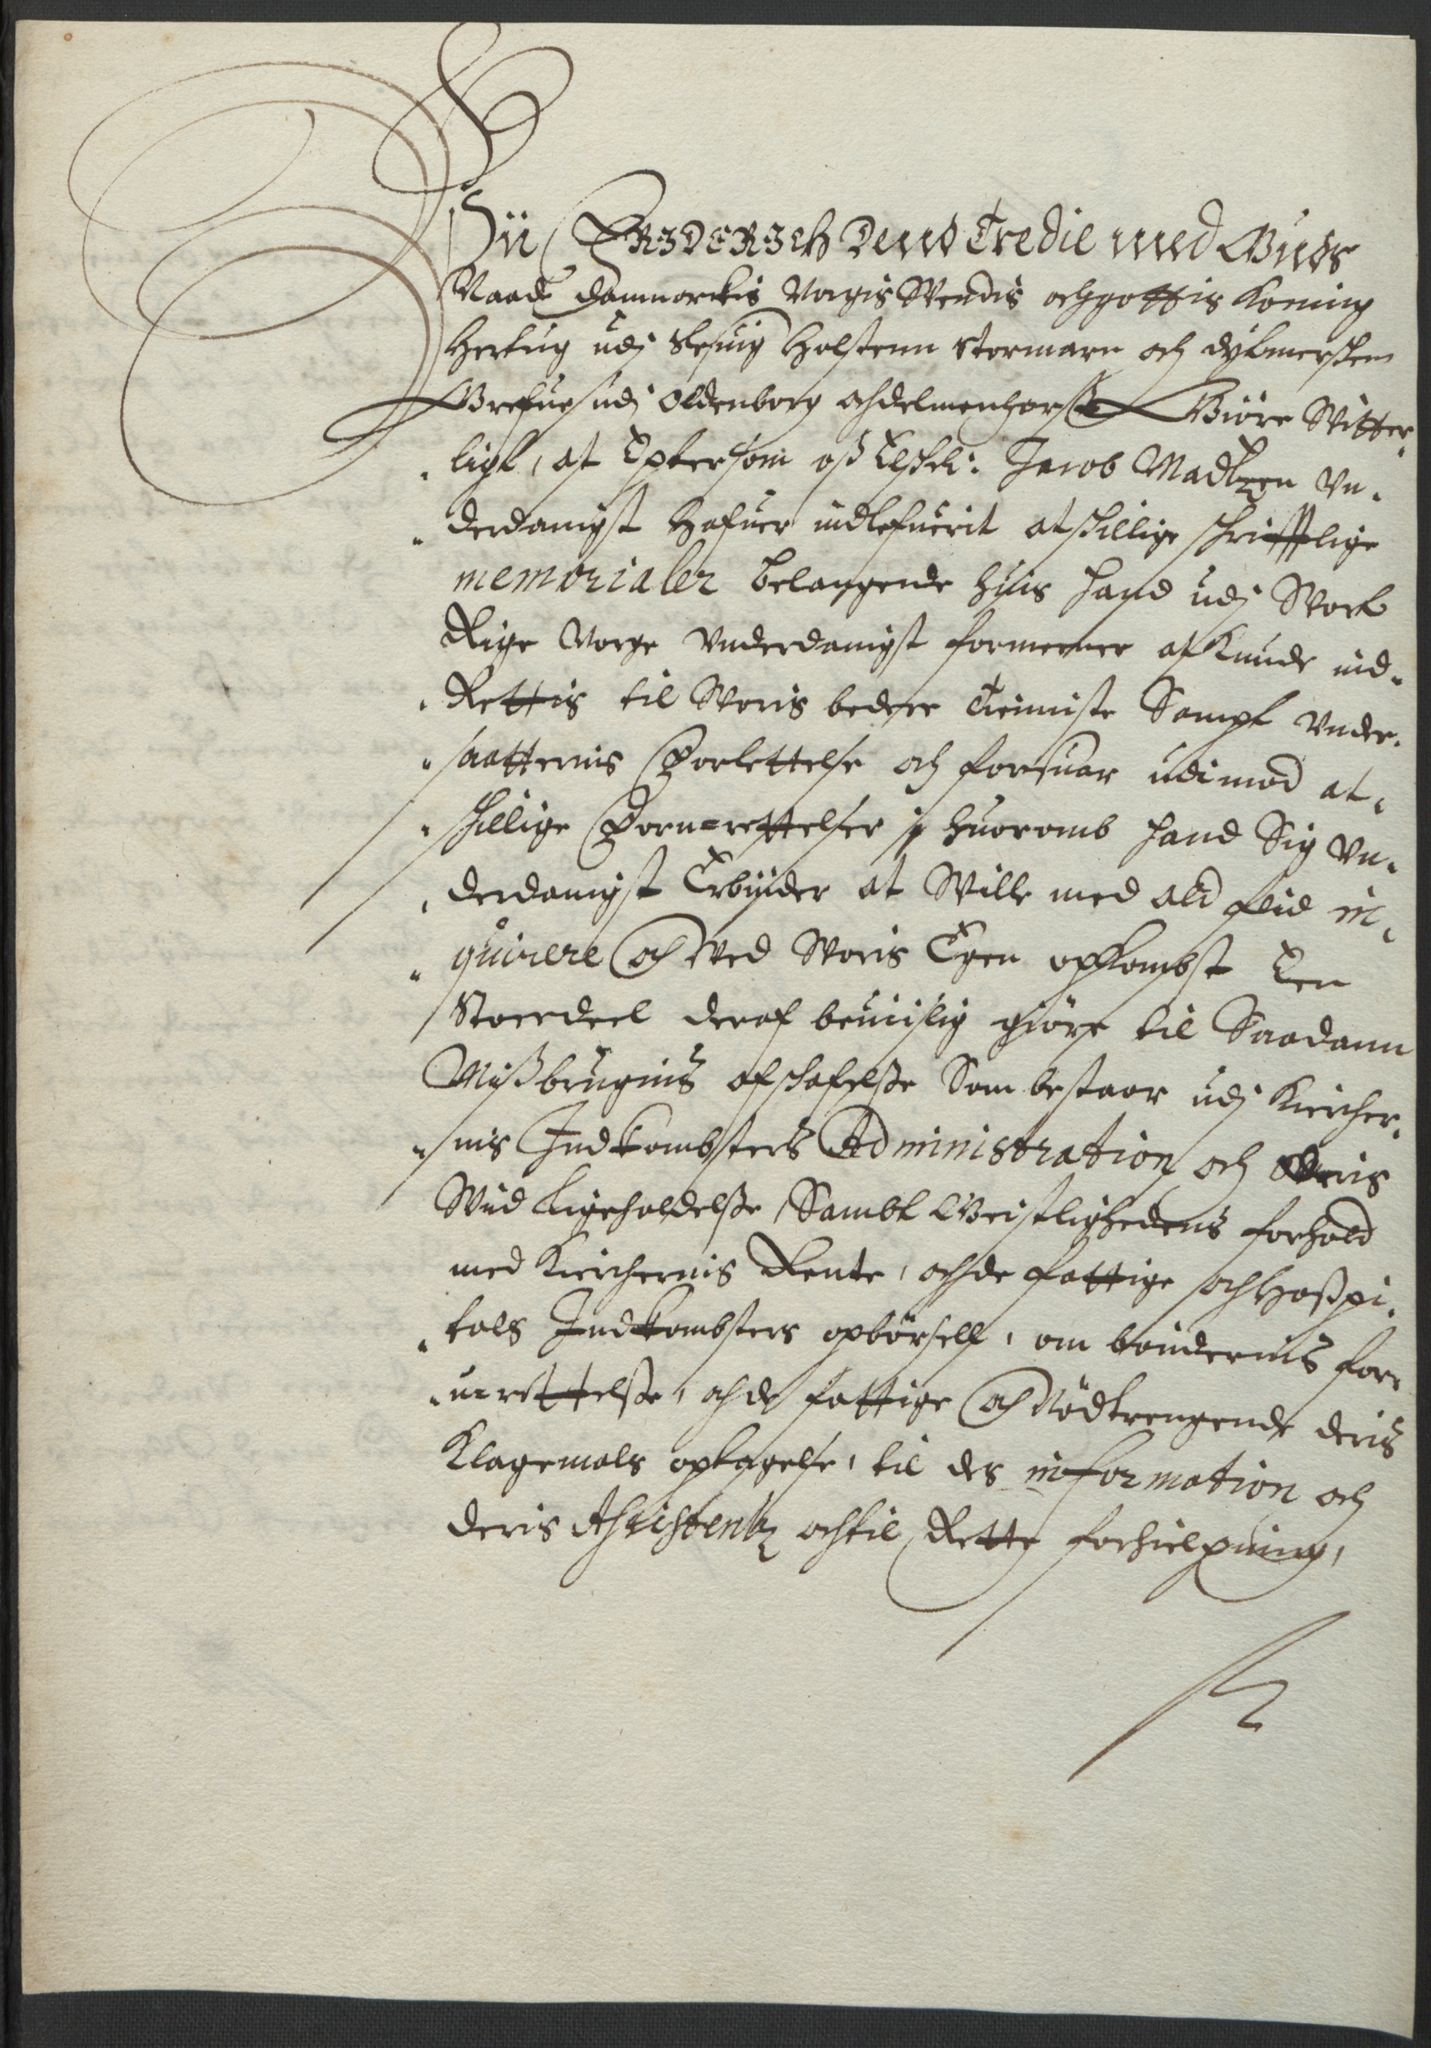 Wii FRIDERICH Dend Tredie med Guds
Naade danmarckis Norgis Wendis och gottis Koning
Hertug udj Slesuig Holstenn Stormarn och dytmerschen
Grefue udj Oldenborg och delmenhorst Giöre Witter-
ligt, at Epter som oss Elskel: Jacob Madtzen Un-
derdanigst Hafuer indlefuerit atskillige schrifftlige
memorialer belangende huis hand udj Wort
Rige Norge Underdanigst formeener at kunde ind-
Rettis til Woris bedere tienniste Sampt Under-
saatternis Forlettelse och forsuar udimod at-
skillige Forurettelser huoromb hand Sig Un-
derdanigst Erbyder at Wille med ald flid in-
quirere och Ved Woris Egen opkombst Een
Stoerdeel deraf beuiislig giöre til Saadann
Missbrugnis afskafelsse Som bestaar udj Kircher-
nis Indkombsters Administration och Deris
Wed ligeholdelsse, Sambt Geistlighedens forhold
med Kirchernis Rente, och de fattige och Hosspi-
tals Indkombsters opbörsell, om böndernis for-
urettelsse, och de fattige och Nödtrengende deris
Klagemals optagelse, til des information och
deris Assistentz och til Rette forhielpning,